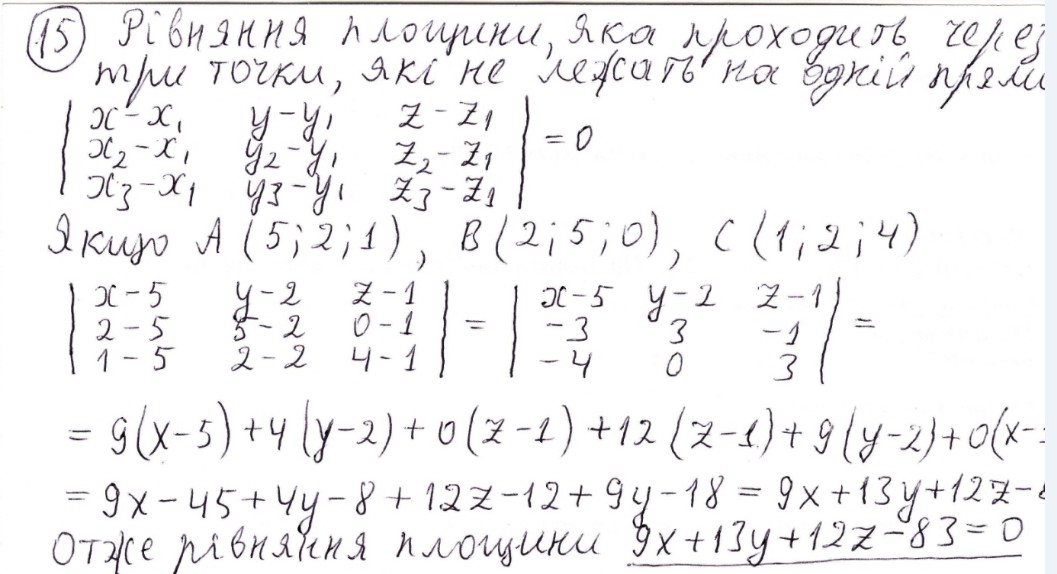 15 Рівняння площини, яка проходить через
три точки, які не лежать на одній прями
| x-x₁ y-y₁ z-z₁ |
| x₂-x₁ y₂-y₁ z₂-z₁ | = 0
| x₃-x₁ y₃-y₁ z₃-z₁ |
Якщо A (5;2;1), B(2;5;0), C (1;2;4)
| x-5 y-2 z-1 | | x-5 y-2 z-1 |
| 2-5 5-2 0-1 | = | -3 3 -1 | =
| 1-5 2-2 4-1 | | -4 0 3 |
= 9(x-5)+4(y-2)+0(z-1)+12(z-1)+9(y-2)+0(x-
= 9x-45+4y-8+12z-12+9y-18 = 9x+13y+12z-
Отже рівняння площини 9x+13y+12z-83=0